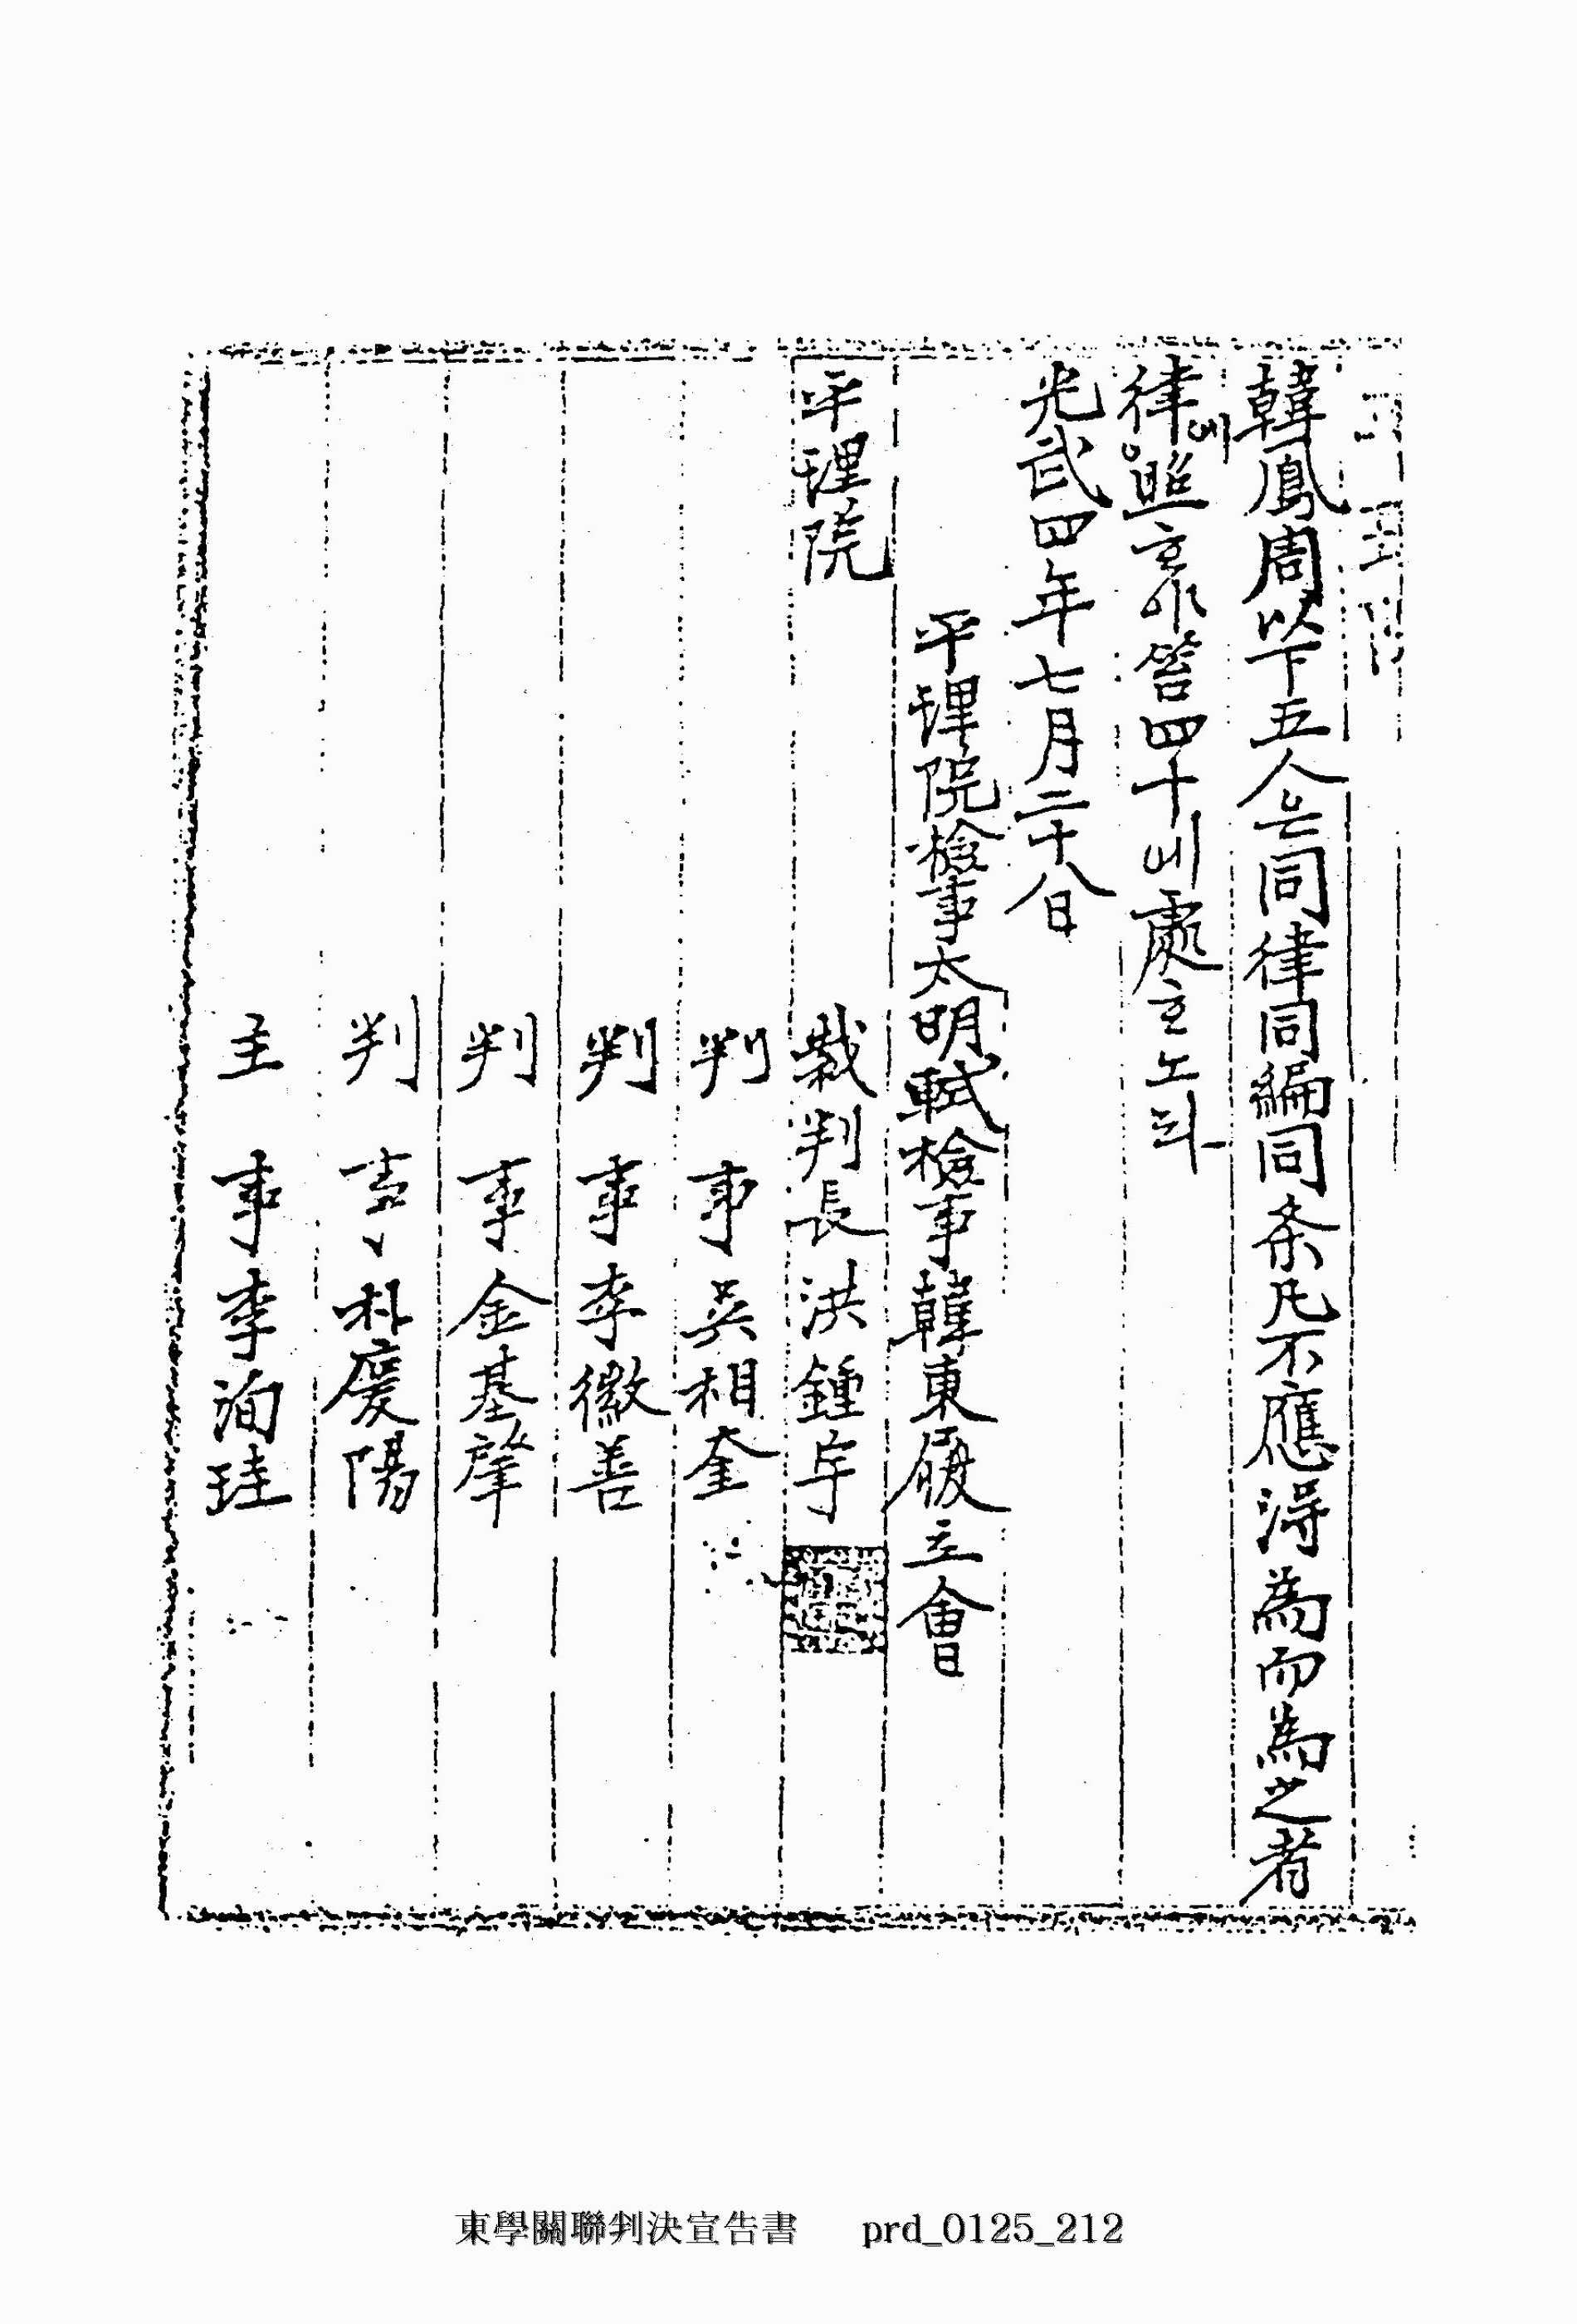 韓鳳周以下五人는同律同編同条凡不應得為而為之者
律에照하야笞四十에處하노라
光武四年七月二十八日
平理院檢事太明軾檢事韓東履立會
平理院
裁判長洪鍾宇
判事吳相奎
判事李徽善
判事金基肇
判事朴慶陽
主事李洵珪
東學關聯判決宣告書 prd_0125_212